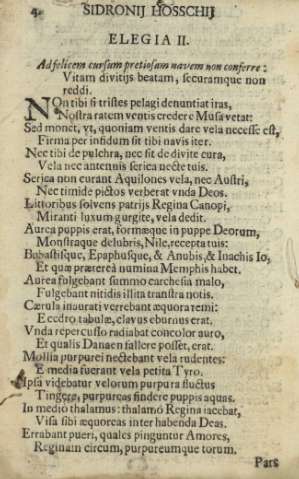 4. SIDRONIJ HOSSCHIJ
ELEGIA II.
Ad felicem cursum pretiosam navem non conferre:
Vitam divitijs beatam, securamque non
reddi.
NOn tibi si tristes pelagi denuntiat iras,
Nostra ratem ventis credere Musa vetat:
Sed monet, vt, quoniam ventis dare vela necesse est,
Firma per infidum sit tibi navis iter.
Nec tibi de pulchra, nec sit de divite cura,
Vela nec antennis serica necte tuis.
Serica non curant Aquilones vela, nec Austri,
Nec timide pictos verberat vnda Deos.
Littoribus solvens patrijs Regina Canopi,
Miranti luxum gurgite, vela dedit.
Aurea puppis erat, formæque in puppe Deorum,
Monstraque delubris, Nile, recepta tuis:
Bubastisque, Epaphusque, & Anubis, & Inachis Io,
Et quæ prætereà numina Memphis habet.
Aurea fulgebant summo carchesia malo,
Fulgebant nitidis illita transtra notis.
Cærula inaurati verrebant æquora remi:
E cedro tabulæ, clavus eburnus erat.
Vnda repercusso radiabat concolor auro,
Et qualis Danaen fallere posset, erat.
Mollia purpurei nectebant vela rudentes:
E media fuerant vela petita Tyro.
Ipsa videbatur velorum purpura fluctus
Tingere, purpureas findere puppis aquas.
In medio thalamus: thalamo Regina iacebat,
Visa sibi æquoreas inter habenda Deas.
Errabant pueri, quales pinguntur Amores,
Reginam circum, purpureumque torum.
Pars